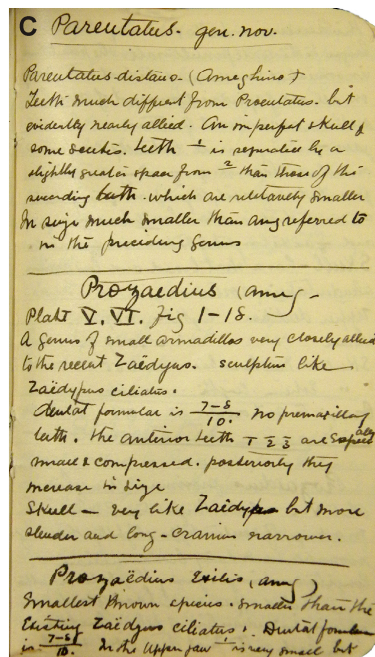 C Parentatus - gen. nov.
Parentatus distans - (Ameghino)
Teeth much different from Proeutatus. but
evidently nearly allied. An imperfect skull &
some scutes. teeth 1 is separated by a
slightly greater space from 2 than those of the
succeeding teeth. which are relatively smaller
In size much smaller than any referred to
in the preceding genus
Prozaedius (ameg -
Plate V. VI. fig 1-18.
A genus of small armadillos very closely allied
to the recent Zaëdyus. sculpture like
Zaëdypus ciliatus.
dental formular is 7-8/10. no premaxillary
teeth. the anterior teeth 1 2 3 are especially
small & compressed. posteriorly they
increase in size
Skull - very like Zaëdypus but more
slender and long - cranium narrower.
Prozaëdius Exilis (ameg)
Smallest known species. smaller than the
Existing Zaëdyus ciliatus. Dental formular
is 7-8/10. In the Upper jaw 1 is very small but